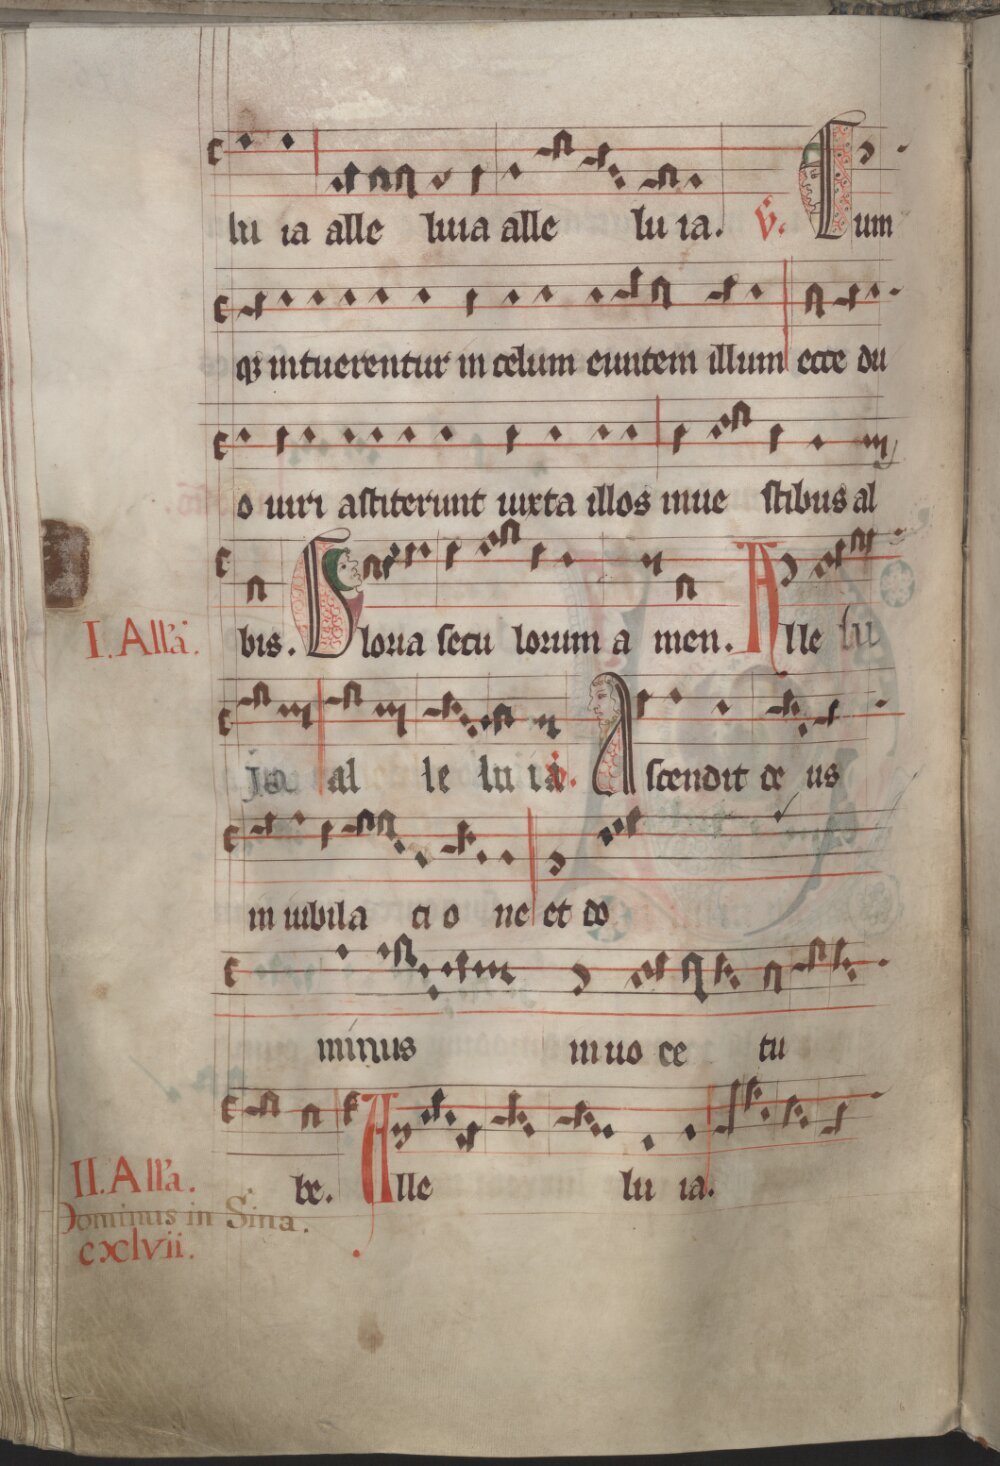 lu ia alle luia alle lu ia. V. Cum
q3 intuerentur in celum euntem illum ecce du
o uiri astiterunt iuxta illos inue stibus al
I. All'a. bis. Gloria secu lorum a men. Alle lu
ja al le lu ia. V. Ascendit de us
in iubila ti o ne et do
minus in uo ce tu
II. All'a. be. Alle lu ia.
Dominus in Sina.
cxlvii.